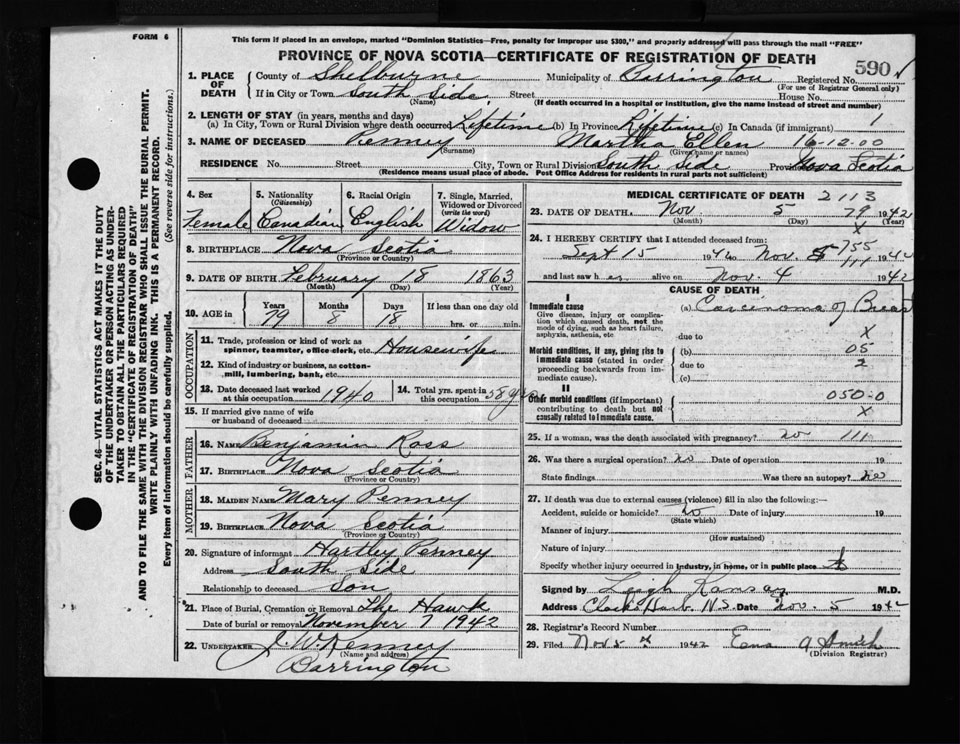 FORM 6
This form if placed in an envelope, marked "Dominion Statistics—Free, penalty for improper use $300," and properly addressed will pass through the mail "FREE"
PROVINCE OF NOVA SCOTIA—CERTIFICATE OF REGISTRATION OF DEATH
590
1. PLACE OF DEATH
County of Shelburne Municipality of Barrington Registered No.
(For use of Registrar General only)
If in City or Town South Side, Street House No.
(Name) (If death occurred in a hospital or institution, give the name instead of street and number)
2. LENGTH OF STAY (in years, months and days) 1
(a) In City, Town or Rural Division where death occurred Lifetime (b) In Province Lifetime (c) In Canada (if immigrant)
3. NAME OF DECEASED Penney Martha Ellen 16-12-00
(Surname) (Given name or names)
RESIDENCE No. Street City, Town or Rural Division South Side Province Nova Scotia
(Residence means usual place of abode. Post Office Address for residents in rural parts not sufficient)
4. Sex
Female
5. Nationality
(Citizenship)
Canadian
6. Racial Origin
English
7. Single, Married, Widowed or Divorced
(write the word)
Widow
8. BIRTHPLACE Nova Scotia
(Province or Country)
9. DATE OF BIRTH February 18 1863
(Month) (Day) (Year)
10. AGE in
Years Months Days If less than one day old
79 8 18 hrs. or min.
OCCUPATION
11. Trade, profession or kind of work as spinner, teamster, office clerk, etc Housewife
12. Kind of industry or business, as cotton-mill, lumbering, bank, etc.
13. Date deceased last worked at this occupation 1940
14. Total yrs. spent in this occupation 58 yrs
15. If married give name of wife or husband of deceased
FATHER
16. Name Benjamin Ross
17. Birthplace Nova Scotia
(Province or Country)
MOTHER
18. Maiden Name Mary Penney
19. Birthplace Nova Scotia
(Province or Country)
20. Signature of informant Hartley Penney
Address South Side
Relationship to deceased Son
21. Place of Burial, Cremation or Removal The Hawk
Date of burial or removal November 7 1942
22. UNDERTAKER
(Name and address)
Barrington
MEDICAL CERTIFICATE OF DEATH 2113
23. DATE OF DEATH. Nov 5 79 1942
(Month) (Day) (Year)
X
24. I HEREBY CERTIFY that I attended deceased from:
755
Sept 15 194 Nov. 5 111 194
and last saw her alive on Nov. 4 1942
CAUSE OF DEATH
I
Immediate cause
Give disease, injury or complication which caused death, not the mode of dying, such as heart failure, asphyxia, asthenia, etc
(a) Carcinoma of Breast
due to X
Morbid conditions, if any, giving rise to immediate cause (stated in order proceeding backwards from immediate cause).
(b) 05
due to 2
(c)
II
Other morbid conditions (if important) contributing to death but not causally related to immediate cause.
050-0
X
25. If a woman, was the death associated with pregnancy? no 111
26. Was there a surgical operation? no Date of operation 19
State findings Was there an autopsy? no
27. If death was due to external causes (violence) fill in also the following:—
Accident, suicide or homicide? no Date of injury 19
(State which)
Manner of injury
(How sustained)
Nature of injury
Specify whether injury occurred in industry, in home, or in public place
Signed by Leigh Ramsay M.D.
Address Clark's Harb. N.S. Date Nov. 5 194
28. Registrar's Record Number
29. Filed Nov 5th 1942 Ena A Smith
(Division Registrar)
SEC. 46—VITAL STATISTICS ACT MAKES IT THE DUTY
OF THE UNDERTAKER OR PERSON ACTING AS UNDER-
TAKER TO OBTAIN ALL THE PARTICULARS REQUIRED
IN THE "CERTIFICATE OF REGISTRATION OF DEATH"
AND TO FILE THE SAME WITH THE DIVISION REGISTRAR WHO SHALL ISSUE THE BURIAL PERMIT.
WRITE PLAINLY WITH UNFADING INK. THIS IS A PERMANENT RECORD.
Every item of information should be carefully supplied. (See reverse side for instructions.)